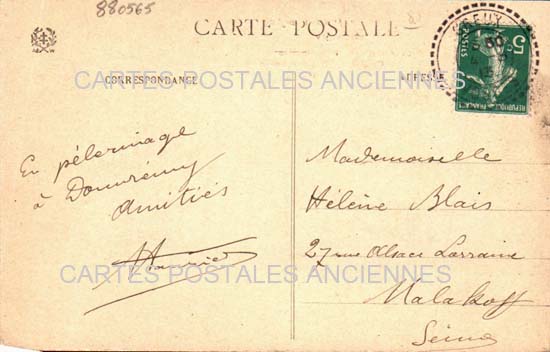 880565
CARTE POSTALE
CARTES POSTALES ANCIENNES
CORRESPONDANCE
ADRESSE
5
POSTES
REPUBLIQUE FRANÇAISE
En pélerinage
à Domrémy
Amitiés
Mademoiselle
Hélène Blais
27 rue Alsace Lorraine
Malakoff
Seine
CARTES POSTALES ANCIENNES